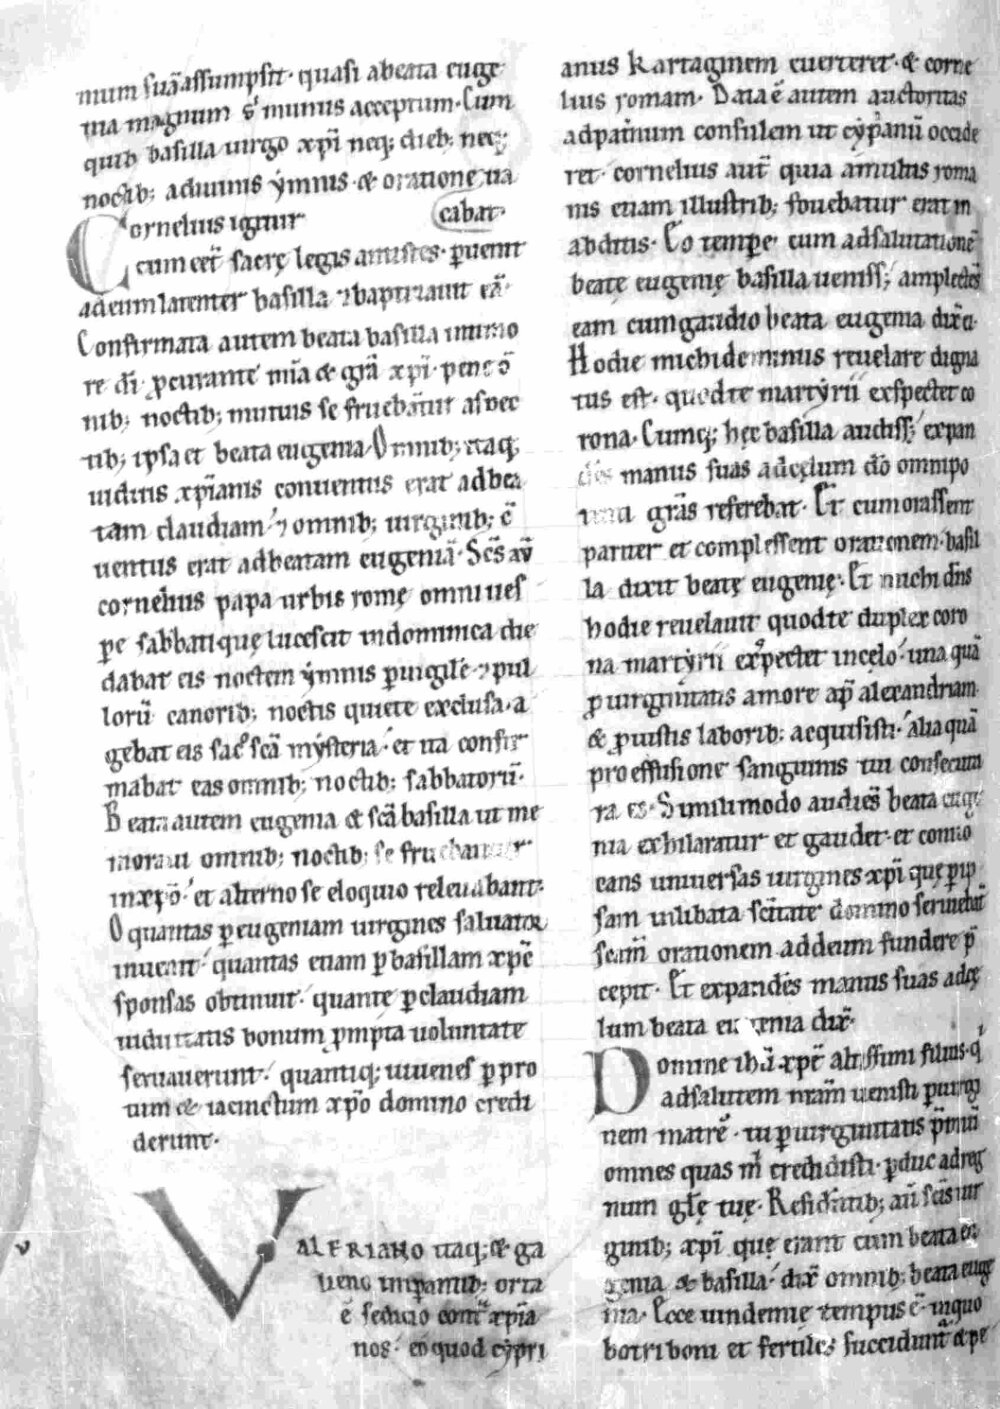 num suā assumpsit· quasi abeata euge
nia magnum s̄ munus acceptum· Cum
quib; basilla uirgo xp̄i neq; dieb; neq;
noctib; adiuinis ẏmnis· & oratione ua
cabat·
Cornelius igitur
cum cēt sacrę legis antistes· ꝑuenit
adeum latenter basilla ⁊baptizauit eā·
Confirmata autem beata basilla intimo
re dī ꝓcurante mīa & grā xp̄i· pene ō
nib; noctib; mutuis se fruebant̄ aspec
tib; ipsa et beata eugenia· Omnib; itaq;
uiduis xp̄ianis conuentus erat adbea
tam claudiam· ⁊ omnib; uirginib; c̄
uentus erat adbeatam eugeniā· Sc̄s au̅
cornelius papa urbis romę omni ues
ꝑe sabbati quę lucescit indominica die
dabat eis noctem ẏmnis ꝑuigilē· ⁊ pul
lorū canorib; noctis quiete exclusa· a
gebat eis sacᵒsc̄a mẏsteria· et ita confir
mabat eas omnib; noctib; sabbatorū·
Beata autem eugenia & sc̄a basilla ut me
moraui omnib; noctib; se fruebantur
inxp̄o· et alterno se eloquio releuabant·
O quantas ꝑ eugeniam uirgines saluator
inuenit· quantas etiam ꝑ basillam xp̄c
sponsas obtinuit· quantę ꝑ claudiam
uiduitatis bonum ꝓmpta uoluntate
seruauerunt· quantiq; iuuenes ꝑ pro
tum & iacinctum xp̄o domino credi
derunt·
VALERIANO itaq; & ga
lieno imꝑantib; orta
ē sedicio cont̄ xp̄ia
nos· eo quod cẏpri
anus Kartaginem euerteret· & corne
lius romam· Data ē autem auctoritas
adpat̄num consulem ut cẏp̄anū occide
ret· cornelius aut̄ quia amultis roma
nis etiam illustrib; fouebatur erat in
abditis· Eo temꝑe cum adsalutationē
beatę eugenię basilla uenīss; amplectēs
eam cum gaudio beata eugenia dix̄ ei·
Hodie michi dominus reuelare digna
tus est· quod te martẏrii exspectet co
rona· Cumq; hęc basilla audiss; expan
dēs manus suas ad cęlum dō omnipo
tenti grās referebat· Et cum orassent
pariter et complessent orationem· basil
la dixit beatę eugenię· Et michi dn̄s
hodie reuelauit quod te duplex coro
na martẏrii exspectet in cęlo· una quā
ꝓ uirginitatis amore ap̄ alexandriam
& ꝓ iustis laborib; acquisisti· alia quā
pro effusione sanguinis tui consecuta
ra es· Simili modo audiēs beata euge
nia exhilaratur et gaudet· et conuo
cans uniuersas uirgines xp̄i quę ꝑ ip
sam illibata sc̄itate domino seruiebat̄
secum orationem ad deum fundere p̄
cepit· Et expandēs manus suas ad cę
lum beata eugenia dix̄·
Domine ihū xp̄e altissimi filius· qͥ
ad salutem nr̄am uenisti ꝑ uirgi
nem matrē· tu ꝑ uirginitatis p̄miū
omnes quas m̄ credidisti· ꝑduc ad reg
num glę tuę· Residentib; au̅ sc̄is uir
ginib; xp̄i quę erant cum beata eu
genia & basilla· dix̄ omnib; beata euge
nia· Ecce uindemię tempus ē· in quo
botri boni et fertiles succidunt̄ & pe